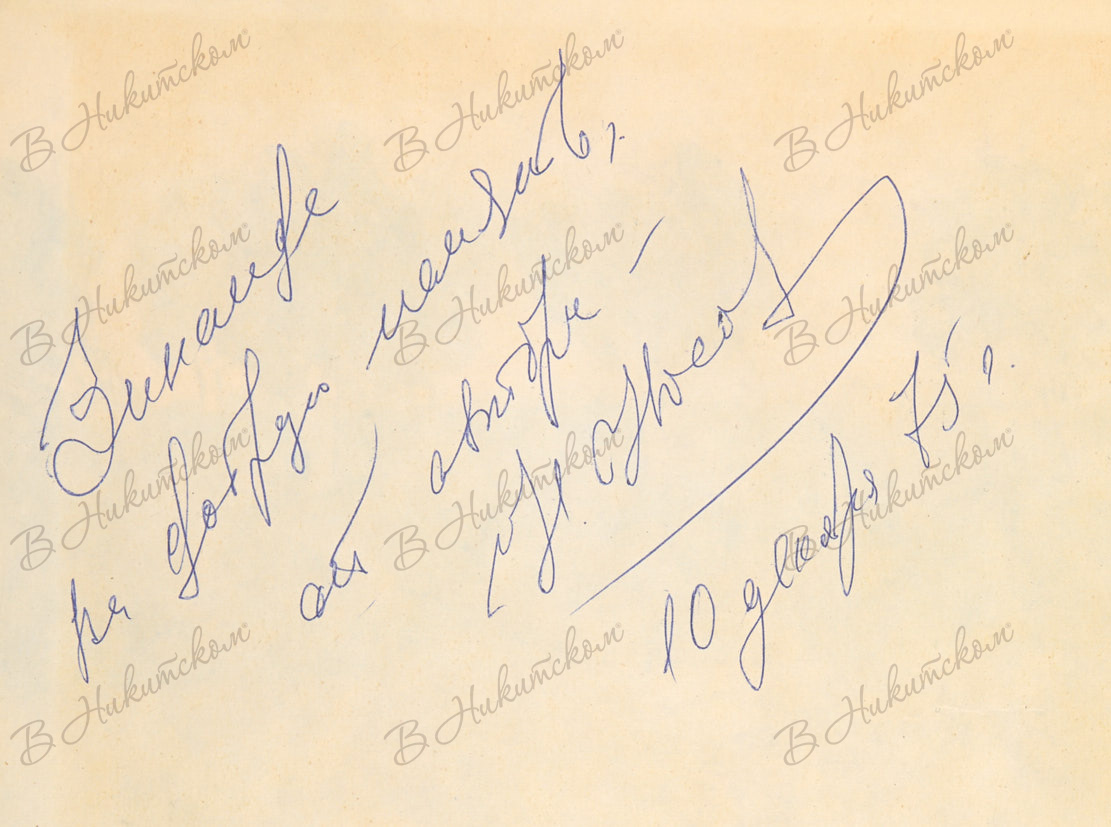 Зинаиде
на добрую память,
от автора —
10 декабря 75 г.
В Никитском® В Никитском® В Никитском®
В Никитском® В Никитском® В Никитском®
В Никитском® В Никитском® В Никитском®
В Никитском® В Никитском® В Никитском®